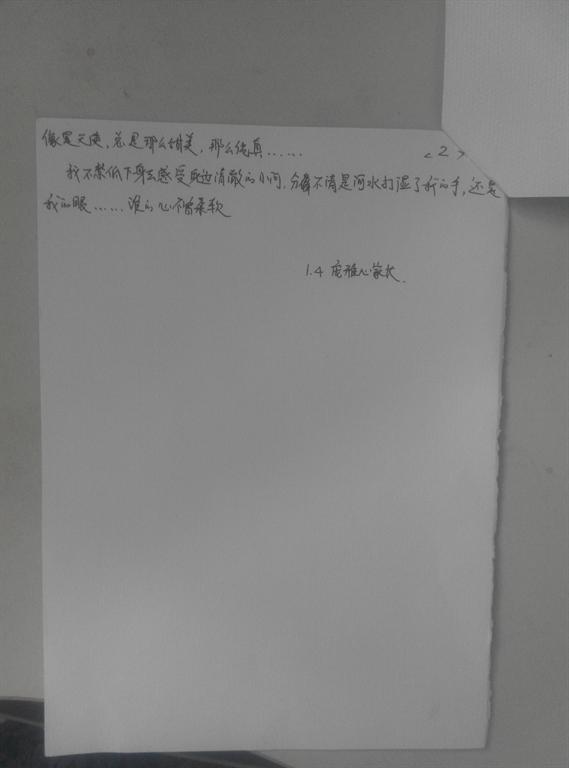 <2>
像是天使，总是那么甜美，那么纯真……
我不禁低下身去感受路边清澈的小河，分辨不清是河水打湿了我的手，还是
我的眼……谁的心不曾柔软
1.4 庞雅心家长.